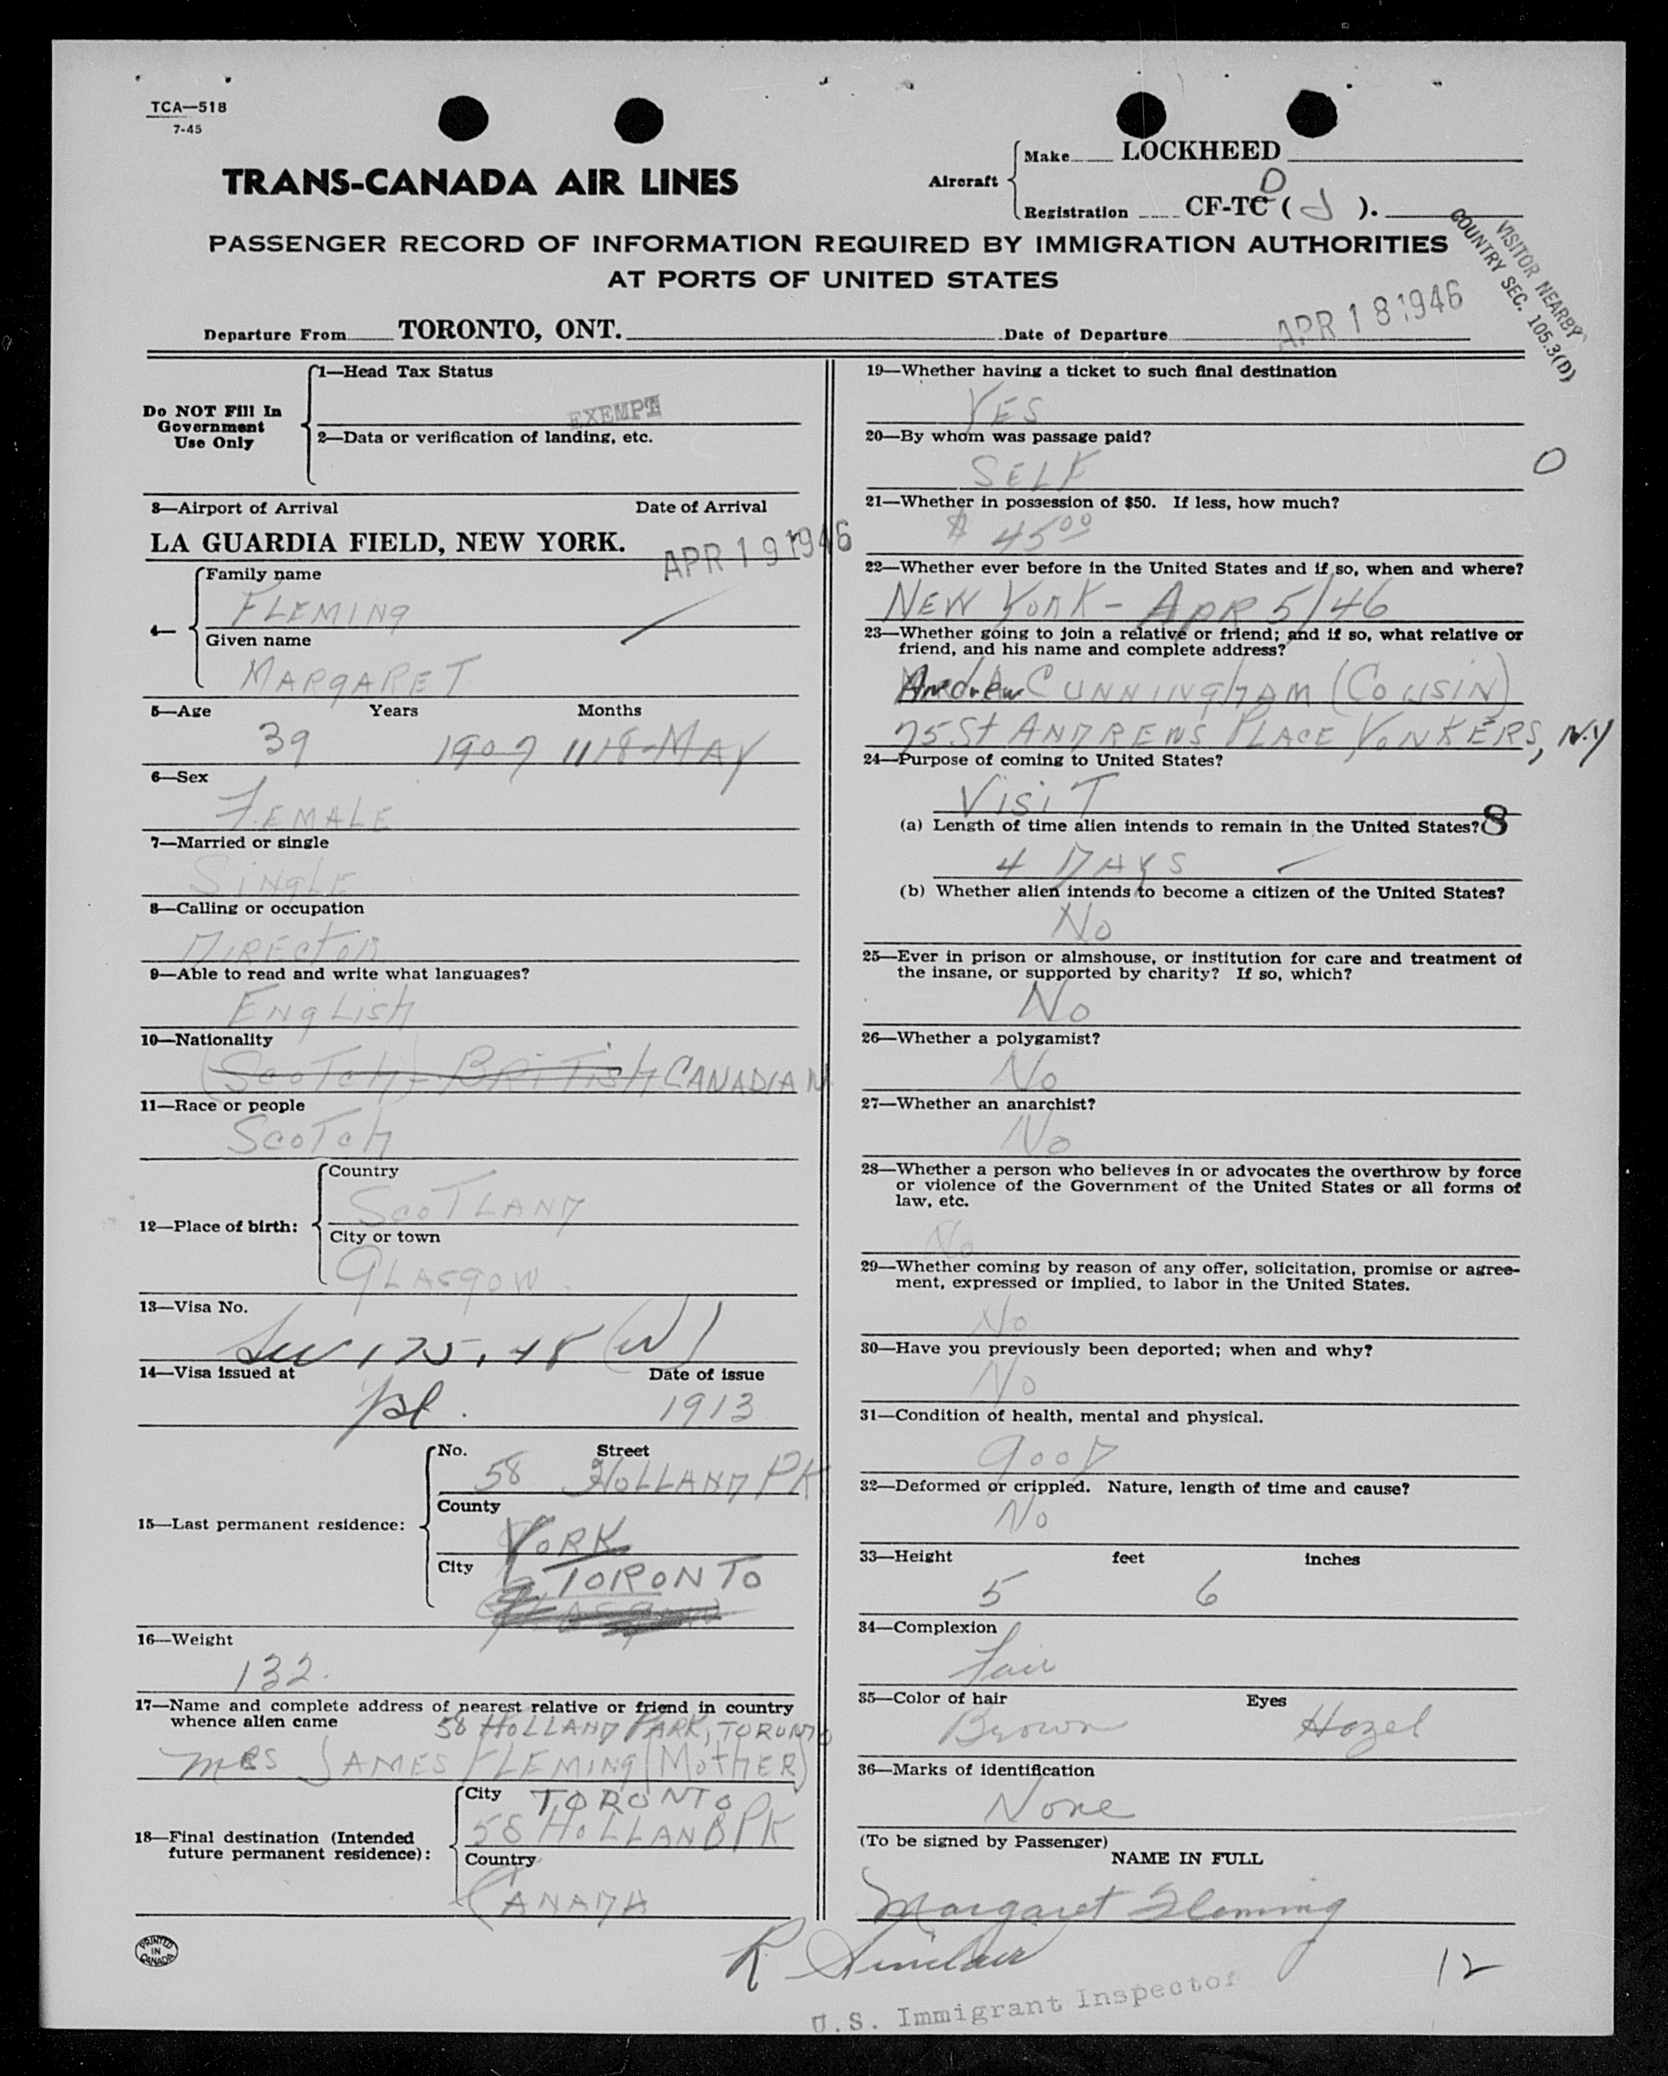 TCA—518
7-45
TRANS-CANADA AIR LINES
Aircraft
Make LOCKHEED
D
Registration CF-TC ( J ).
PASSENGER RECORD OF INFORMATION REQUIRED BY IMMIGRATION AUTHORITIES
AT PORTS OF UNITED STATES
VISITOR NEARBY
COUNTRY SEC. 105.3(D)
Departure From TORONTO, ONT. Date of Departure APR 18 1946
Do NOT Fill In
Government
Use Only
1—Head Tax Status
EXEMPT
2—Data or verification of landing, etc.
3—Airport of Arrival Date of Arrival
LA GUARDIA FIELD, NEW YORK. APR 19 1946
4—
Family name
FLEMING
Given name
MARGARET
5—Age Years Months
39 1907 11 18-MAY
6—Sex
FEMALE
7—Married or single
SINGLE
8—Calling or occupation
DIRECTOR
9—Able to read and write what languages?
ENGLISH
10—Nationality
(SCOTCH)-BRITISH CANADIAN
11—Race or people
SCOTCH
12—Place of birth:
Country
SCOTLAND
City or town
GLASGOW.
13—Visa No.
175.48 (W)
14—Visa issued at Date of issue
1913
15—Last permanent residence:
No. Street
58 HOLLAND PK
County
YORK
City
TORONTO
GLASGOW
16—Weight
132.
17—Name and complete address of nearest relative or friend in country
whence alien came
58 HOLLAND PARK, TORONTO
MRS JAMES FLEMING (MOTHER)
18—Final destination (Intended
future permanent residence):
City TORONTO
58 HOLLAND PK
Country
CANADA
PRINTED
IN
CANADA
19—Whether having a ticket to such final destination
YES
20—By whom was passage paid?
0
SELF
21—Whether in possession of $50. If less, how much?
$ 45.00
22—Whether ever before in the United States and if so, when and where?
NEW YORK - APR 5/46
23—Whether going to join a relative or friend; and if so, what relative or
friend, and his name and complete address?
Andrew CUNNINGHAM (COUSIN)
75 St ANDREWS PLACE, YONKERS, N.Y
24—Purpose of coming to United States?
VISIT
(a) Length of time alien intends to remain in the United States? 8
4 DAYS
(b) Whether alien intends to become a citizen of the United States?
NO
25—Ever in prison or almshouse, or institution for care and treatment of
the insane, or supported by charity? If so, which?
NO
26—Whether a polygamist?
NO
27—Whether an anarchist?
NO
28—Whether a person who believes in or advocates the overthrow by force
or violence of the Government of the United States or all forms of
law, etc.
NO
29—Whether coming by reason of any offer, solicitation, promise or agree-
ment, expressed or implied, to labor in the United States.
NO
30—Have you previously been deported; when and why?
NO
31—Condition of health, mental and physical.
GOOD
32—Deformed or crippled. Nature, length of time and cause?
NO
33—Height feet inches
5 6
34—Complexion
Fair
35—Color of hair Eyes
Brown Hazel
36—Marks of identification
None
(To be signed by Passenger)
NAME IN FULL
Margaret Fleming
R Sinclair
12
U.S. Immigrant Inspector